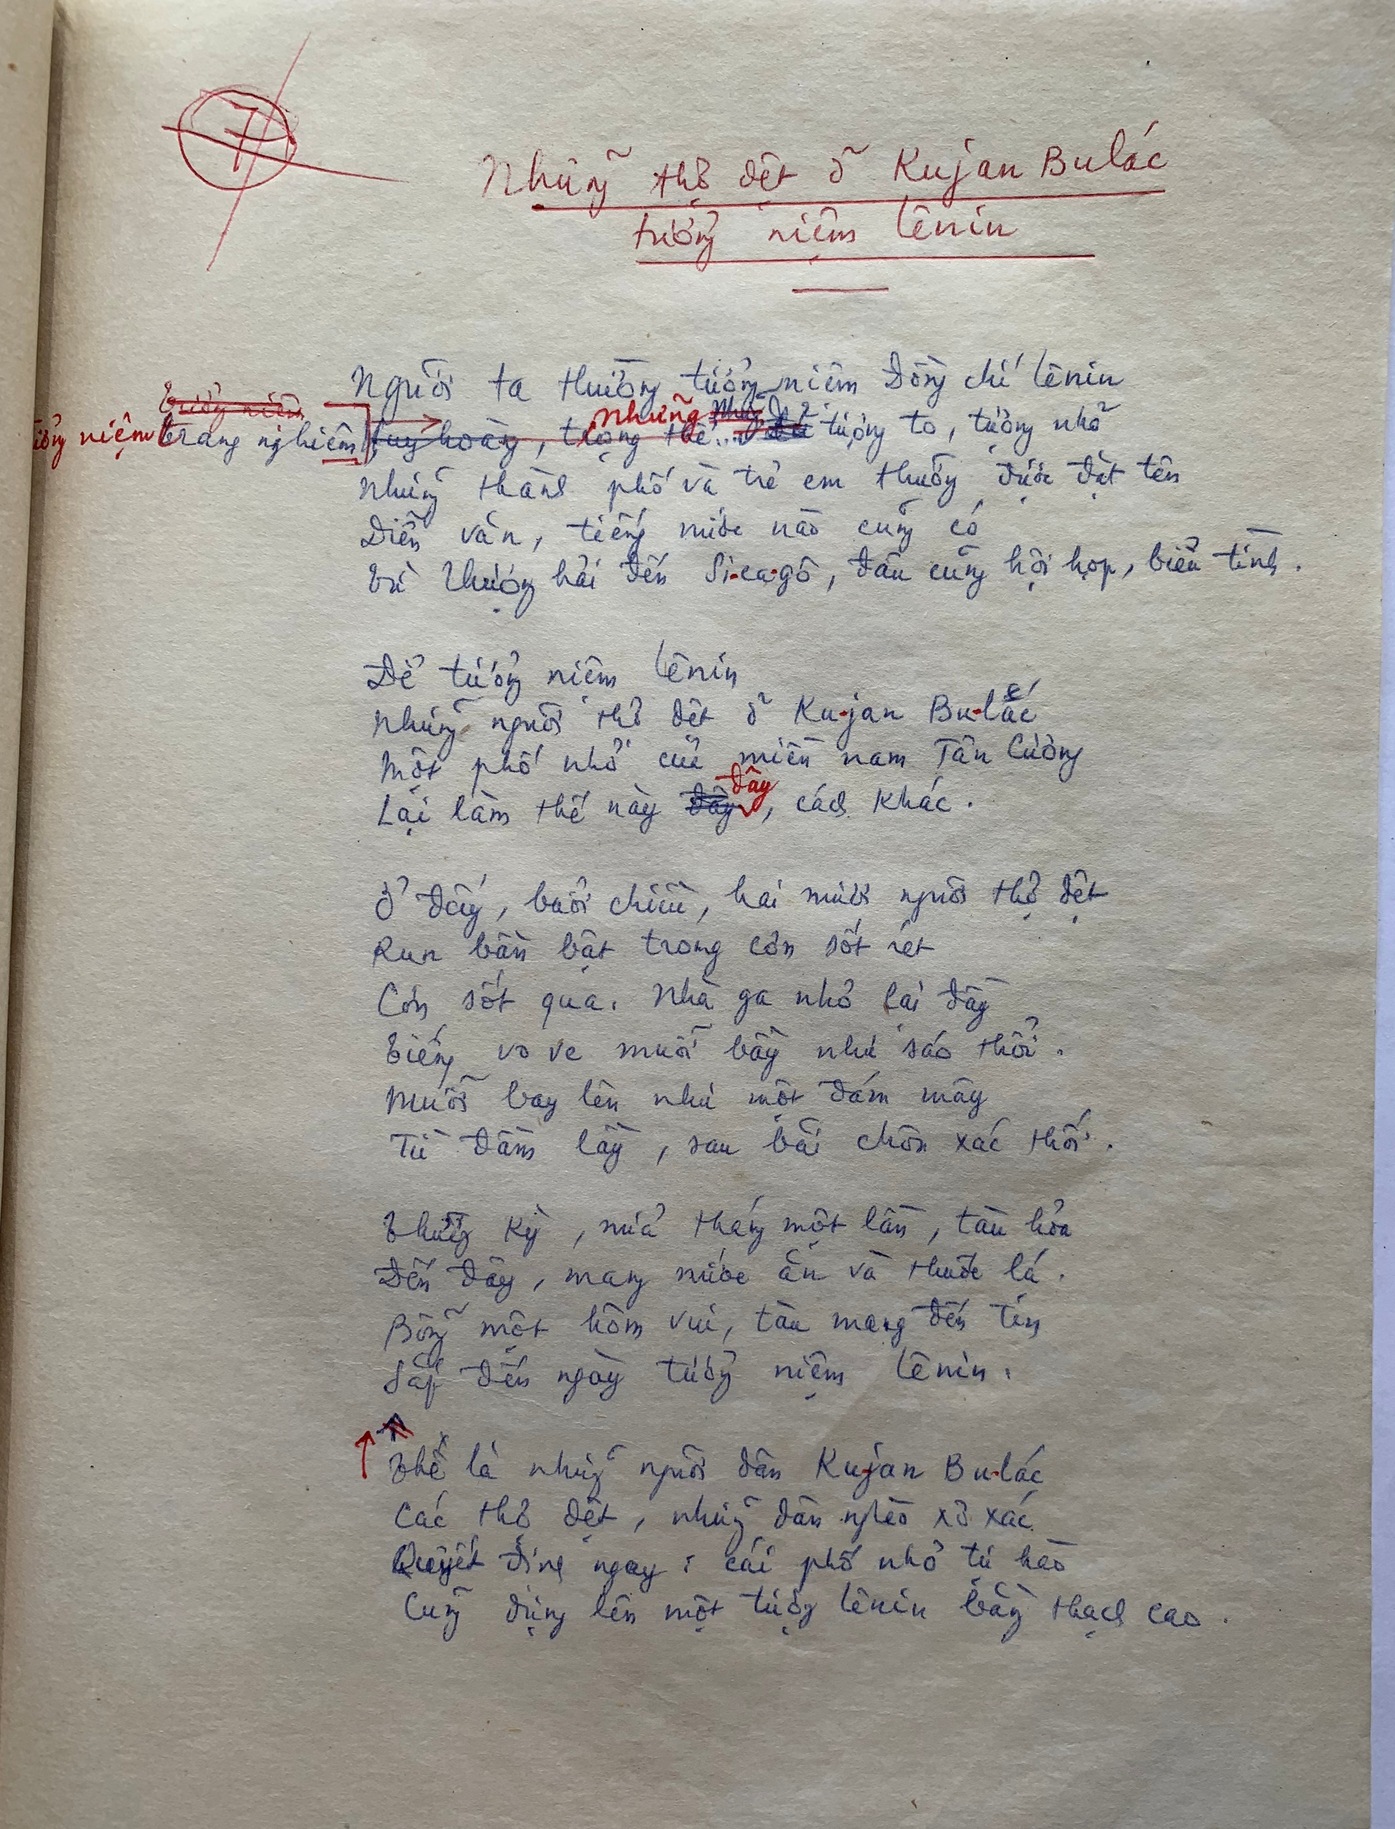 7
Những thợ dệt ở Kujan Bulắc
tưởng niệm Lênin
Người ta thường tưởng niệm Đồng chí Lênin
Tưởng niệm
tưởng niệm trang nghiêm, tuy hoàng, trọng thể... những tượng to, tượng nhỏ
Những thành phố và trẻ em thường được đặt tên
Diễn văn, tiếng nước nào cũng có
Từ Thượng hải đến Si-ca-gô, đâu cũng hội họp, biểu tình.
Để tưởng niệm Lênin
Những người thợ dệt ở Ku-jan Bu-lắc
Một phố nhỏ của miền nam Tân Cường
Lại làm thế này đây đây, cách khác.
Ở đấy, buổi chiều, hai mươi người thợ dệt
Run bần bật trong cơn sốt rét
Cơn sốt qua. Nhà ga nhỏ lại đầy
Tiếng vo ve muỗi bầy như sáo thổi.
Muỗi bay lên như một đám mây
Từ đầm lầy, sau bãi chôn xác thối.
Thường kỳ, nửa tháng một lần, tàu hỏa
Đến đây, mang nước ăn và thuốc lá.
Bỗng một hôm vui, tàu mang đến tin
Sắp đến ngày tưởng niệm Lênin.
Thế là những người dân Ku-jan Bu-lắc
Các thợ dệt, những dân nghèo xơ xác
Quyết định ngay: cái phố nhỏ tự hào
Cũng dựng lên một tượng Lênin bằng thạch cao.